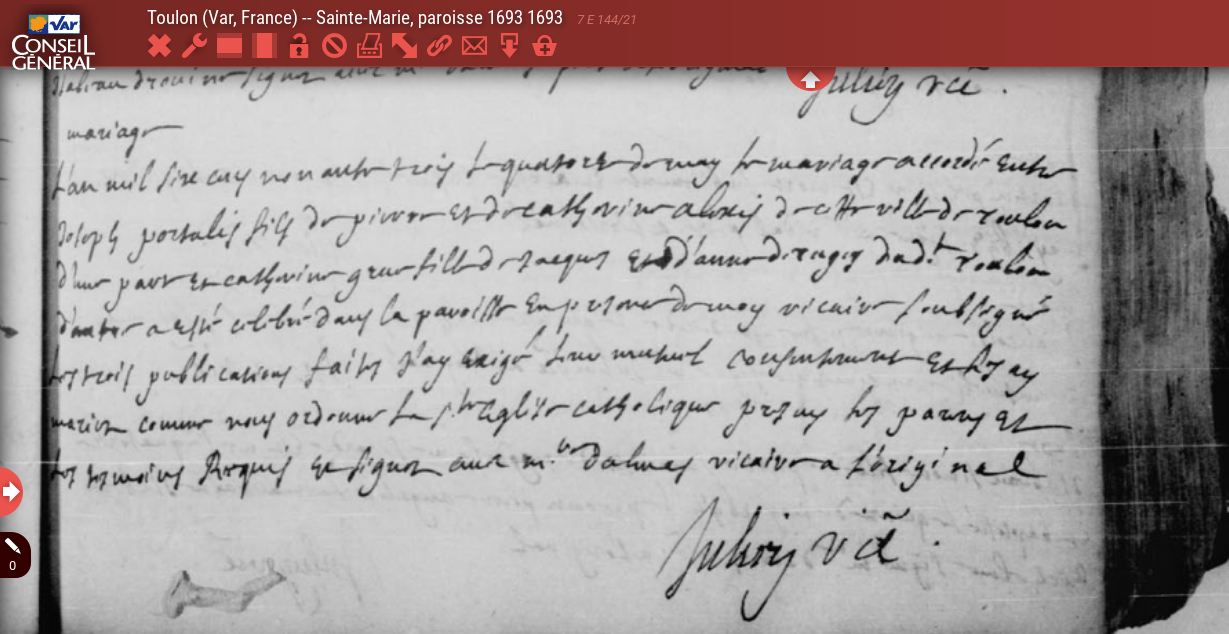 Toulon (Var, France) -- Sainte-Marie, paroisse 1693 1693 7 E 144/21
Var
CONSEIL
GÉNÉRAL
vic .
mariage
L'an mil six cens nonante trois le quatorze de may le mariage accordé entre
Joseph portalis fils de pierre et de catherine alexis de cette ville de toulon
d'une part et catherine fille de Jacques et d'anne dud.t toulon
d'autre a esté celebré dans la paroisse en presence de moy vicaire soubsigné
les trois publications faites J'ay exigé leur mutuel consentement et les ay
mariez comme nous ordonne la s.te Eglise catholique presens les parens et
les temoins Requis et signez avec m.re dalmas vicaire a l'original
vic .
0